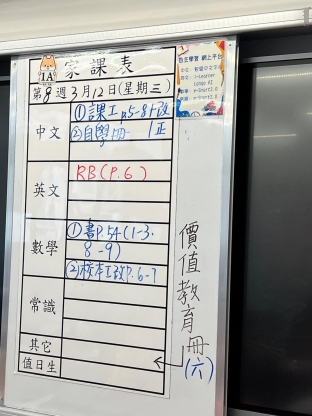 1A
家課表
第8週3月12日(星期三)
中文
①課工p5-8+改
②自學冊 1正
英文
RB(P.6)
數學
①書P54(1-3.
8-9)
②校本工改P.6-7
常識
其它
值日生
價值教育冊
(六)
自主學習 網上平台